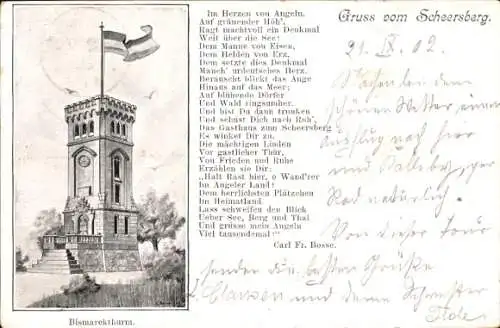 Im Herzen von Angeln,
Auf grünender Höh',
Ragt machtvoll ein Denkmal
Weit über die See:
Dem Manne von Eisen,
Dem Helden von Erz,
Dem setzte dies Denkmal
Manch' urdeutsches Herz.
Berauscht blickt das Auge
Hinaus auf das Meer;
Auf blühende Dörfer
Und Wald ringsumher.
Und bist Du dann trunken
Und sehnst Dich nach Ruh',
Das Gasthaus zum Scheersberg
Es winket Dir zu.
Die mächtigen Linden
Vor gastlicher Thür,
Von Frieden und Ruhe
Erzählen sie Dir:
„Halt Rast hier, o Wand'rer
Im Angeler Land!
Dem herrlichsten Plätzchen
Im Heimatland.
Lass schweifen den Blick
Ueber See, Berg und Thal
Und grüsse mein Angeln
Viel tausendemal!"
Carl Fr. Bosse.
Gruss vom Scheersberg.
21. IX. 02.
Nach dem
schönen Wetter eine
Ausflug nach hier
und
Rad natürlich.
Von dieser Tour
senden die besten Grüße
und deine Schwester
Bismarckthurm.